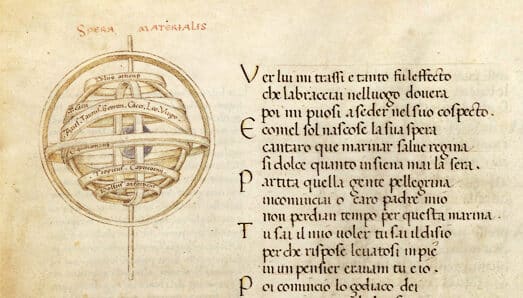 SPERA MATERIALIS
Gemini, Cacer, Leo, Virgo
Tropicus Capricorni
Ver lui mi trassi e tanto fu leffecto
che labracciai nelluogo dovera
poi mi puosi a seder nel suo cospecto.
E comel sol nascose la sua spera
cantaro que marinar salue regina
si dolce quanto insiena mai la sera.
P artita quella gente pellegrina
incominciai o caro padre mio
non perdian tempo per questa marina.
T u sai il mio voler tu sai il disio
per che rispose leuatosi in pie
in un pensier erauam tu e io.
P oi comincio lo godiaco dei